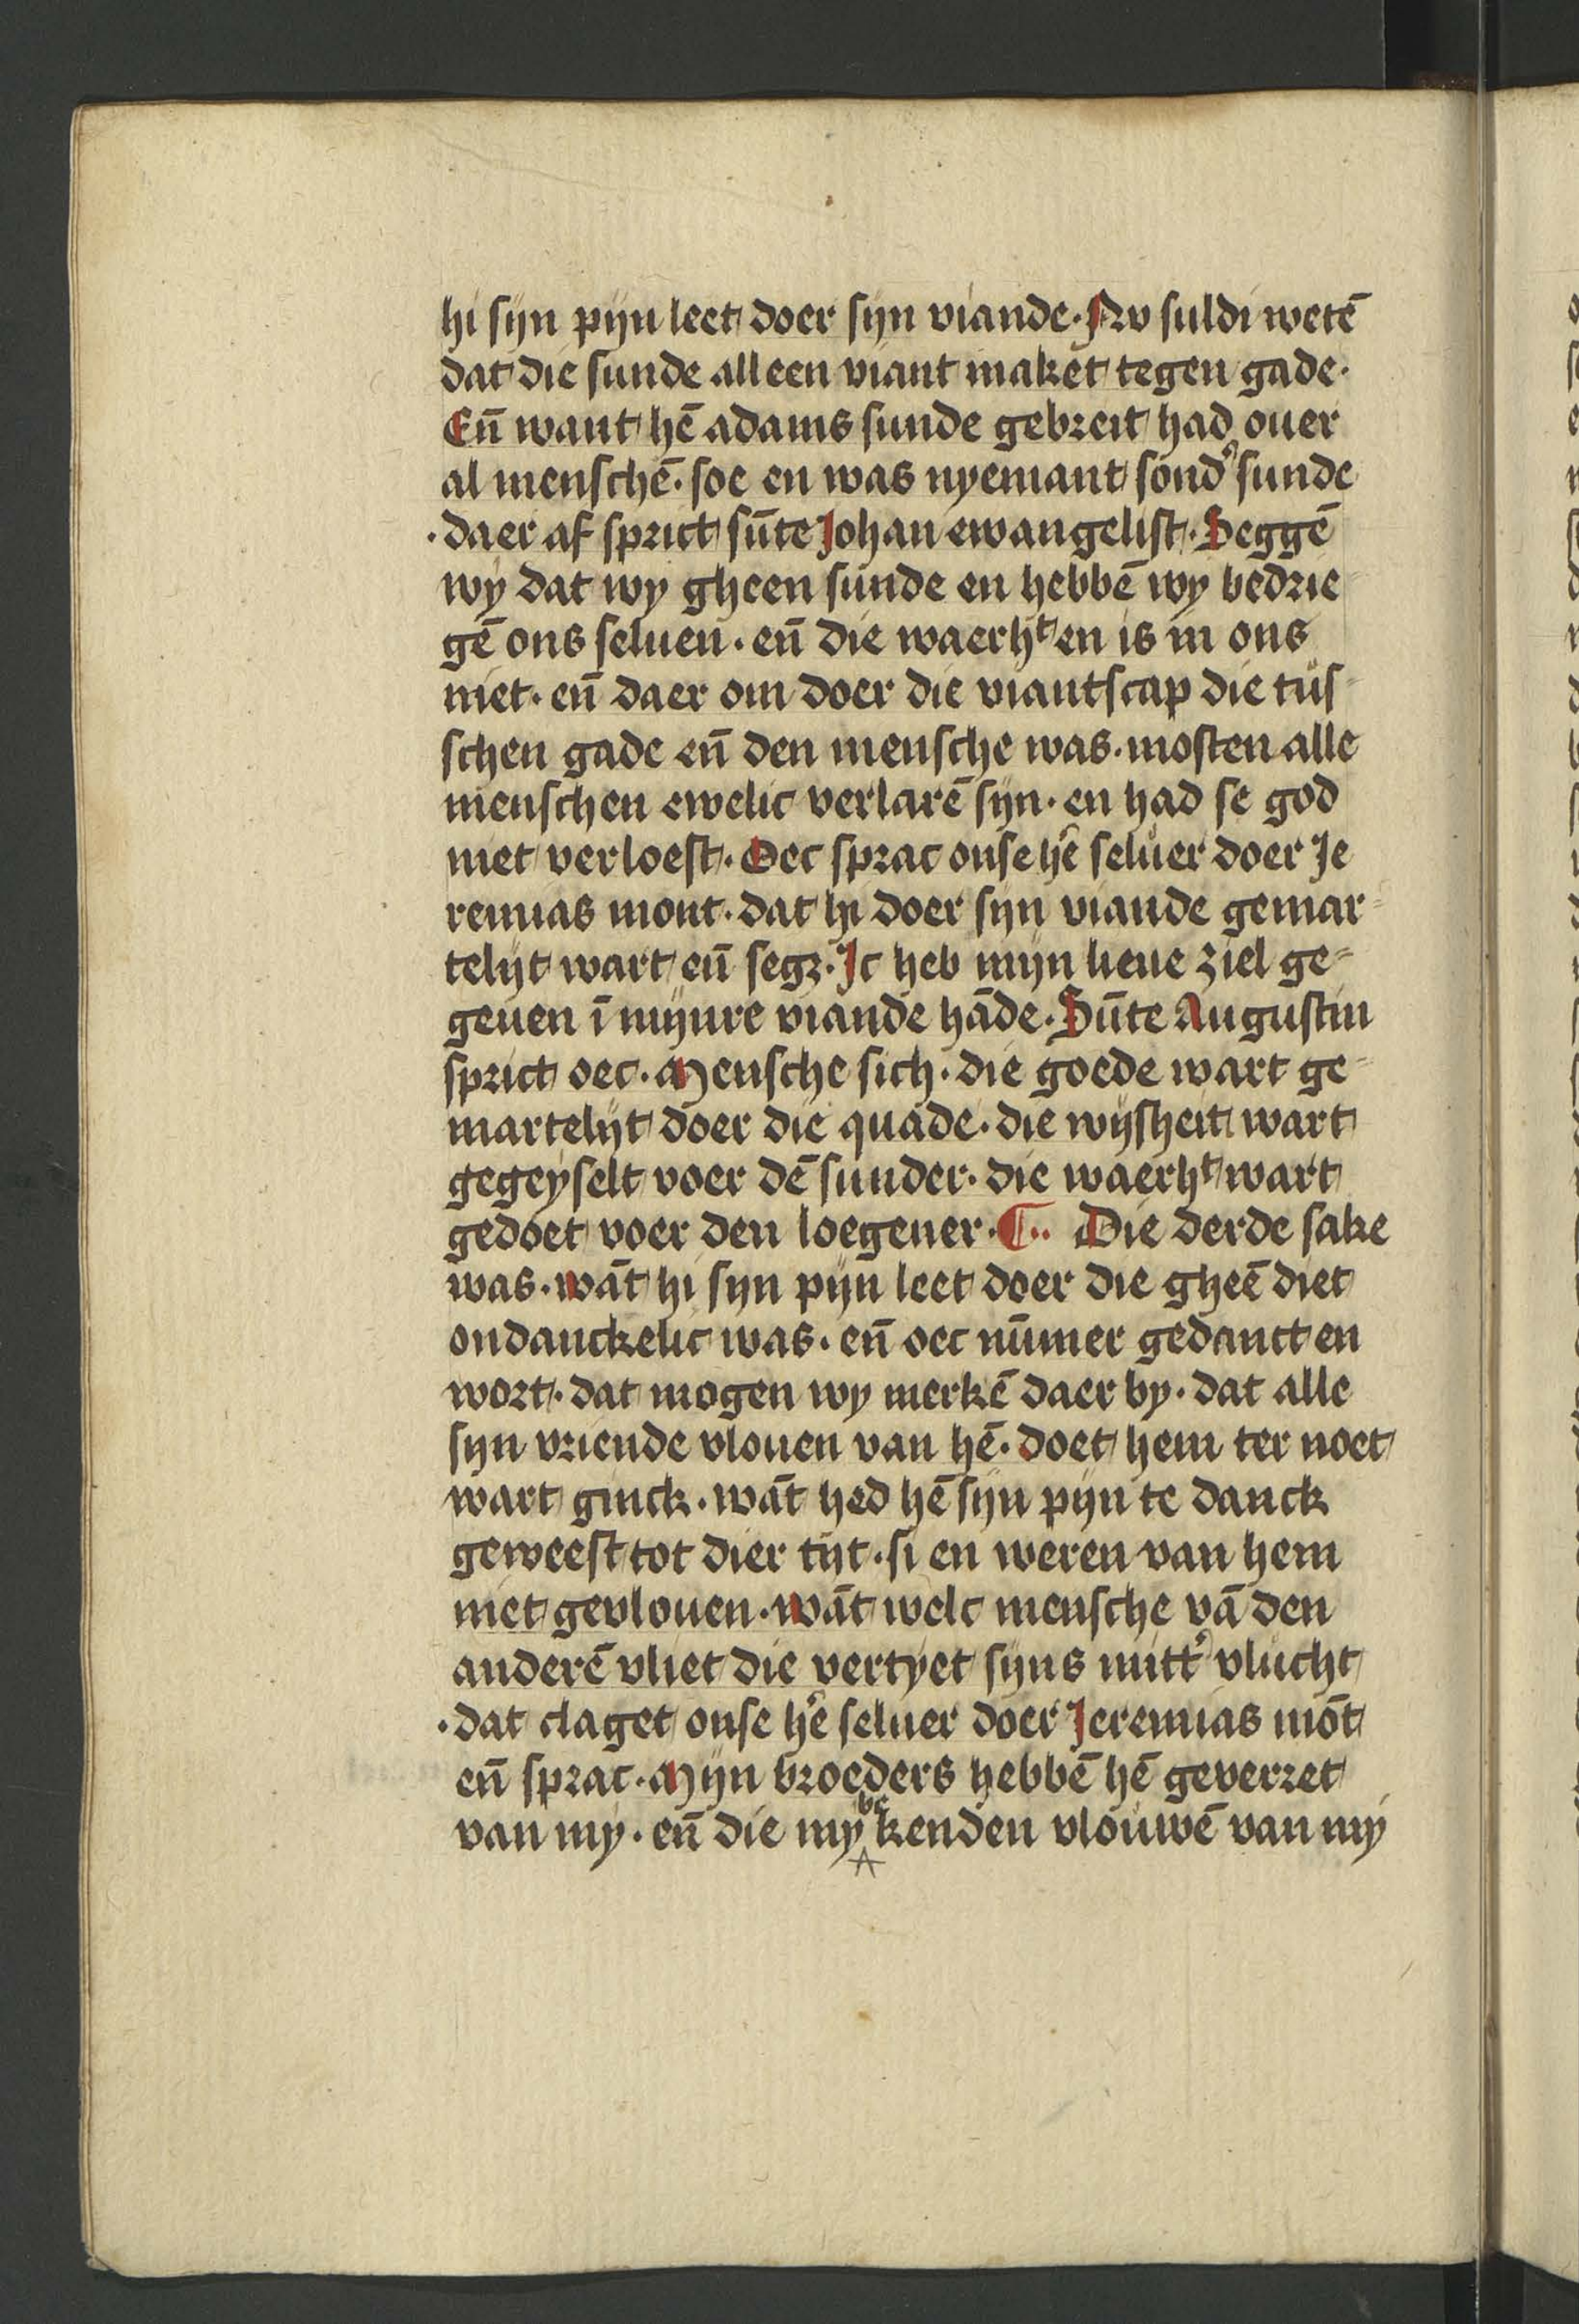 hi sijn pijn leet doer sijn viande · Nv suldi wetē
dat die sunde alleen viant maket tegen gade ·
Eñ want hē adams sunde gebreit had ouer
al menschē · soe en was nyemant sond' sunde
· daer af sprict sūte Johan ewangelist · Seggē
wy dat wy gheen sunde en hebbē wy bedrie
gē ons seluen · eñ die waerhᵗ en is in ons
niet · eñ daer om doer die viantscap die tus
schen gade eñ den mensche was · mosten alle
menschen ewelic verlarē sijn · en had se god
niet verloest · Oec sprac onse hē seluer doer Je
remias mont · dat hi doer sijn viande gemar
telijt wart eñ segꝫ · Jc heb mijn lieue ziel ge
geuen ī mijnre viande hāde · Sūte Augustin
sprict oec · Mensche sich · die goede wart ge
martelijt doer die quade · die wijsheit wart
gegeyselt voer dē sunder · die waerhᵗ wart
gedoet voer den loegener · ¶ ·· Die derde sake
was · wāt hi sijn pijn leet doer die gheē diet
ondanckelic was · eñ oec nūmer gedanct en
wort · dat mogen wy merkē daer by · dat alle
sijn vriende vlouen van hē · doet hem ter noet
wart ginck · wāt hed hē sijn pijn te danck
geweest tot dier tijt · si en weren van hem
niet gevlouen · wāt welc mensche vā den
anderē vliet die vertyet sijns mitt' vlucht
· dat claget onse hē seluer doer Jeremias mōt
eñ sprac · Mijn broeders hebbē hē geverret
van my · eñ die my be kenden vlouwē van my